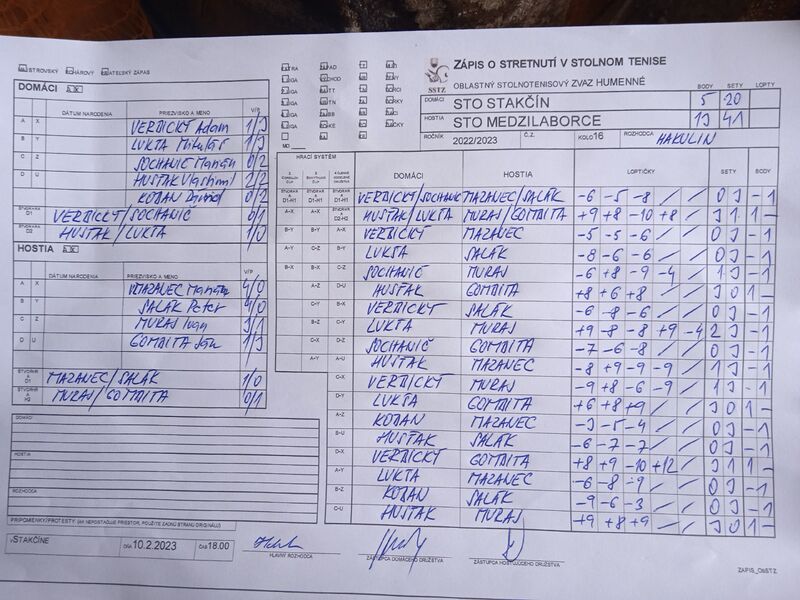 ZÁPIS O STRETNUTÍ V STOLNOM TENISE
OBLASTNÝ STOLNOTENISOVÝ ZVAZ HUMENNÉ
SSTZ
BODY SETY LOPTY
DOMÁCI STO STAKČÍN 5 20
HOSTIA STO MEDZILABORCE 13 41
ROČNÍK 2022/2023 Č.Z. KOLO 16 ROZHODCA HAKULIN
DOMÁCI A X
DÁTUM NARODENIA PRIEZVISKO A MENO V/P
A X VERBICKÝ Adam 1/3
B Y LUKTA Mikuláš 1/3
C Z SOCHANIČ Marián 0/2
D U HUSŤAK Vlastimil 2/2
KOBAN Dávid 0/2
D1 VERBICKÝ/SOCHANIČ 0/1
D2 HUSŤAK/LUKTA 1/0
HOSTIA
DÁTUM NARODENIA PRIEZVISKO A MENO V/P
A X MAZANEC Marián 4/0
B Y SALÁK Peter 4/0
C Z MURAS Ivan 3/1
D U GOMBITA Ján 1/3
MAZANEC/SALÁK 1/0
MURAS/GOMBITA 0/1
HRACÍ SYSTÉM DOMÁCI HOSTIA LOPTIČKY SETY BODY
VERBICKÝ/SOCHANIČ MAZANEC/SALÁK -6 -5 -8 / / 0 3 - 1
HUSŤAK/LUKTA MURAS/GOMBITA +9 +8 -10 +8 / 3 1 1 -
VERBICKÝ MAZANEC -5 -5 -6 / / 0 3 - 1
LUKTA SALÁK -8 -6 -6 / / 0 3 - 1
SOCHANIČ MURAS -6 +8 -9 -4 / 1 3 - 1
HUSŤAK GOMBITA +8 +6 +8 / / 3 0 1 -
VERBICKÝ SALÁK -6 -8 -6 / / 0 3 - 1
LUKTA MURAS +9 -8 -8 +9 -4 2 3 - 1
SOCHANIČ GOMBITA -7 -6 -8 / / 0 3 - 1
HUSŤAK MAZANEC -8 +9 -9 -9 / 1 3 - 1
VERBICKÝ MURAS -9 +8 -6 -9 / 1 3 - 1
LUKTA GOMBITA +6 +8 +9 / / 3 0 1 -
KOBAN MAZANEC -3 -5 -4 / / 0 3 - 1
HUSŤAK SALÁK -6 -7 -7 / / 0 3 - 1
VERBICKÝ GOMBITA +8 +9 -10 +12 / 3 1 1 -
LUKTA MAZANEC -6 -8 -9 / / 0 3 - 1
KOBAN SALÁK -9 -6 -3 / / 0 3 - 1
HUSŤAK MURAS +9 +8 +9 / / 3 0 1 -
DOMÁCI
HOSTIA
ROZHODCA
PRIPOMIENKY/PROTESTY (AK NEPOSTAČUJE PRIESTOR, POUŽITE ZADNÚ STRANU ORIGINÁLU)
V STAKČÍNE DŇA 10.2.2023 ČAS 18.00
HLAVNÝ ROZHODCA
ZÁSTUPCA DOMÁCEHO DRUŽSTVA
ZÁSTUPCA HOSŤUJÚCEHO DRUŽSTVA
ZAPIS_ObSTZ